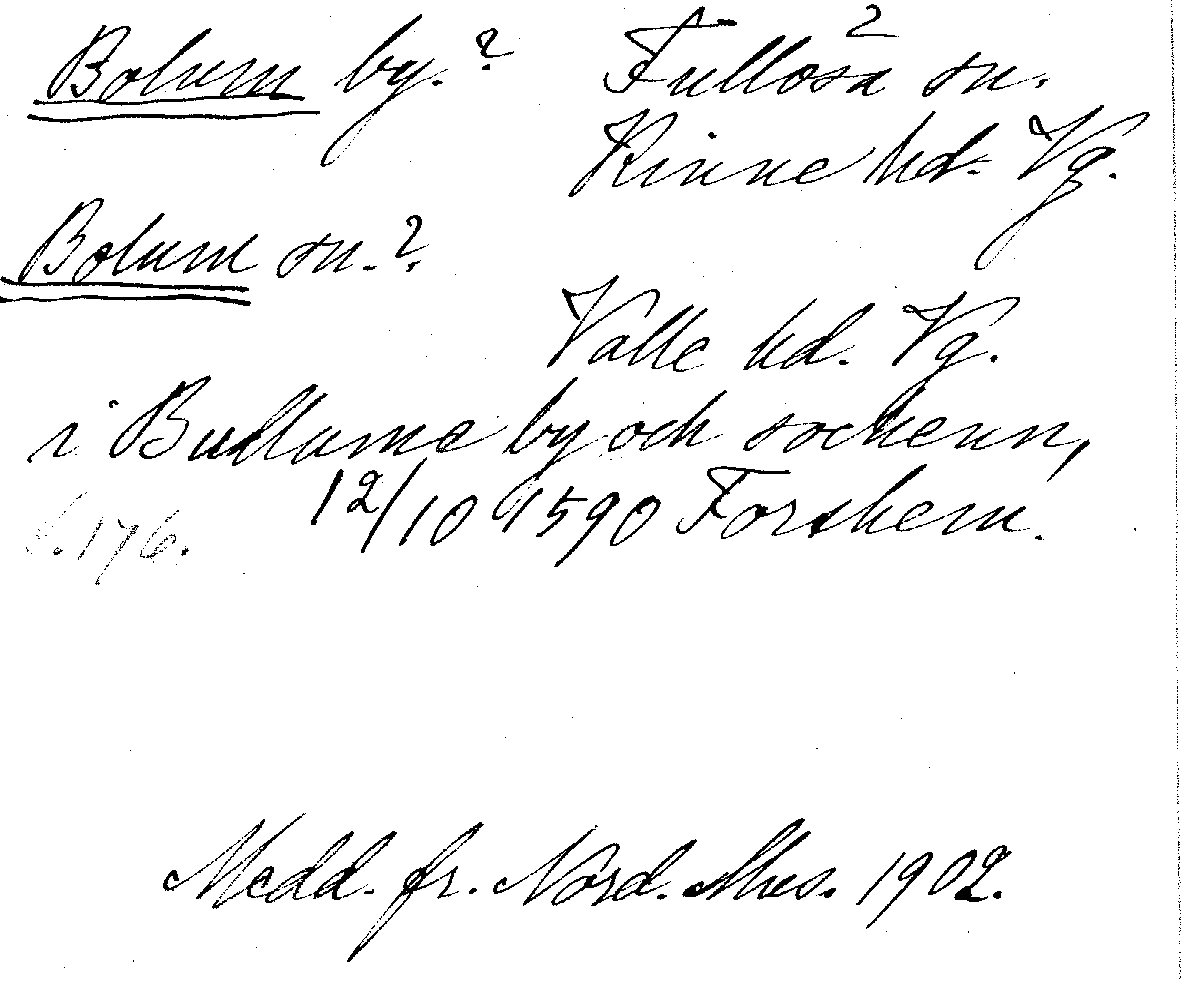 Bolum by.? Fullösa sn.
Kinne hd. Vg.
Bolum sn.?
Valle hd. Vg.
i Bullume by och sockenn,
s. 176. 12/10 1590 Forshem.
Medd. fr. Nord. Mus. 1902.